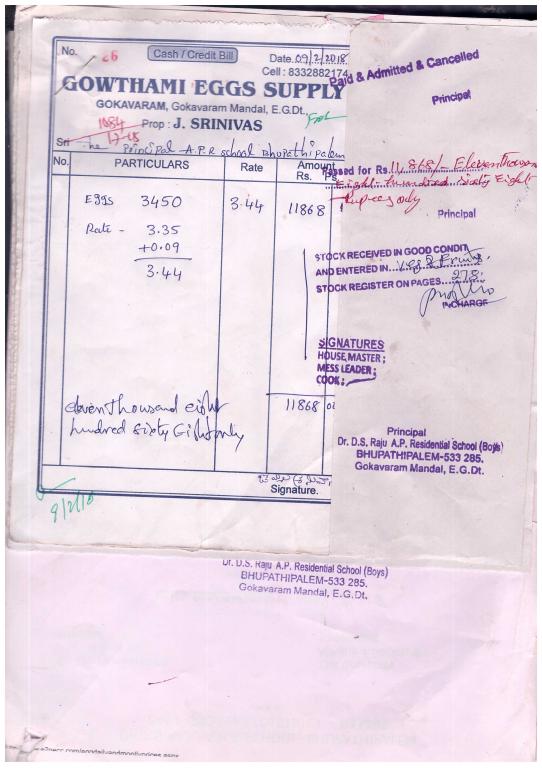 No. 26
Cash / Credit Bill
Date. 09/2/2018
Cell : 8332882174
GOWTHAMI EGGS SUPPLY
GOKAVARAM, Gokavaram Mandal, E.G.Dt.
Prop : J. SRINIVAS
Sri The Principal A.P.R school Bhupathipalem
No. PARTICULARS Rate Amount
Rs. Ps.
EGGS 3450 3.44 11868
Rate - 3.35
+0.09
3.44
eleven thousand eight 11868
hundred Sixty Eight only
Signature.
9/2/18
Paid & Admitted & Cancelled
Principal
Passed for Rs. 11,868/- Eleven Thousand
Eight hundred sixty Eight
Rupees only
Principal
STOCK RECEIVED IN GOOD CONDIT
AND ENTERED IN
STOCK REGISTER ON PAGES 278
INCHARGE
SIGNATURES
HOUSE MASTER ;
MESS LEADER ;
COOK ;
Principal
Dr. D.S. Raju A.P. Residential School (Boys)
BHUPATHIPALEM-533 285.
Gokavaram Mandal, E.G.Dt.
Dr. D.S. Raju A.P. Residential School (Boys)
BHUPATHIPALEM-533 285.
Gokavaram Mandal, E.G.Dt.